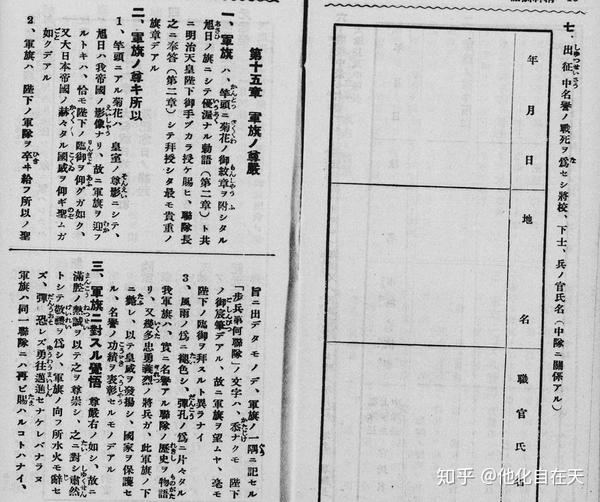 七、出征中名譽ノ戰死ヲ爲セシ將校、下士、兵ノ官氏名(中隊ニ關係アル)
年月日
地名
職官氏名
第十五章 軍旗ノ尊嚴
一、軍旗ハ、竿頭ニ菊花ノ御紋章ヲ附シタル
旭日ノ旗ニシテ優渥ナル勅語(第二章)ト共
ニ明治天皇陛下御手ヅカラ授ケ賜ヒ、聯隊長
之ニ奉答(第二章)シテ拜授シタ最モ貴重ノ
旗章デアル
二、軍旗ノ尊キ所以
1、竿頭ニアル菊花ハ 皇室ノ尊影ニシテ、
旭日ハ我帝國ノ影像ナリ、故ニ軍旗ヲ迎フ
ルトキハ、恰モ陛下ノ臨御ヲ仰グガ如ク、
又大日本帝國ノ赫々タル國威ヲ仰ギ望ムガ
如クデアル
2、軍旗ハ 陛下ノ軍隊ヲ率ヰ給フ所以ノ聖
旨ニ出デタモノデ、軍旗ノ一隅ニ記セル
「步兵第何聯隊」ノ文字ハ、忝ナクモ 陛下
ノ御宸筆デアル、故ニ軍旗ヲ望ムヤ、毫モ
陛下ノ臨御ヲ拜スルト異ラナイ
3、風雨ノ爲ニ褪色シ、彈孔ノ爲ニ片々タル
我軍旗ハ、實ニ名譽アル聯隊ノ歷史ヲ物語
リ、又幾多忠勇義烈ノ將兵ガ、此軍旗ノ下
ニ斃レ、以テ皇威ヲ發揚シ、國家ヲ保護セ
ル、名譽ノ功績ヲ表彰セルモノデアル
三、軍旗ニ對スル覺悟 尊嚴右ノ如シ、故ニ
滿腔ノ熱誠ヲ以テ之ヲ尊崇シ、之ニ對シ肅然
トシテ敬禮ヲ爲シ、軍旗ノ向フ所水火モ辭セ
ズ、彈丸恐レズ勇往邁進セナケレバナラヌ
軍旗ハ同一聯隊ニハ再ビ賜ハルコトハナイ、
知乎 @他化自在天